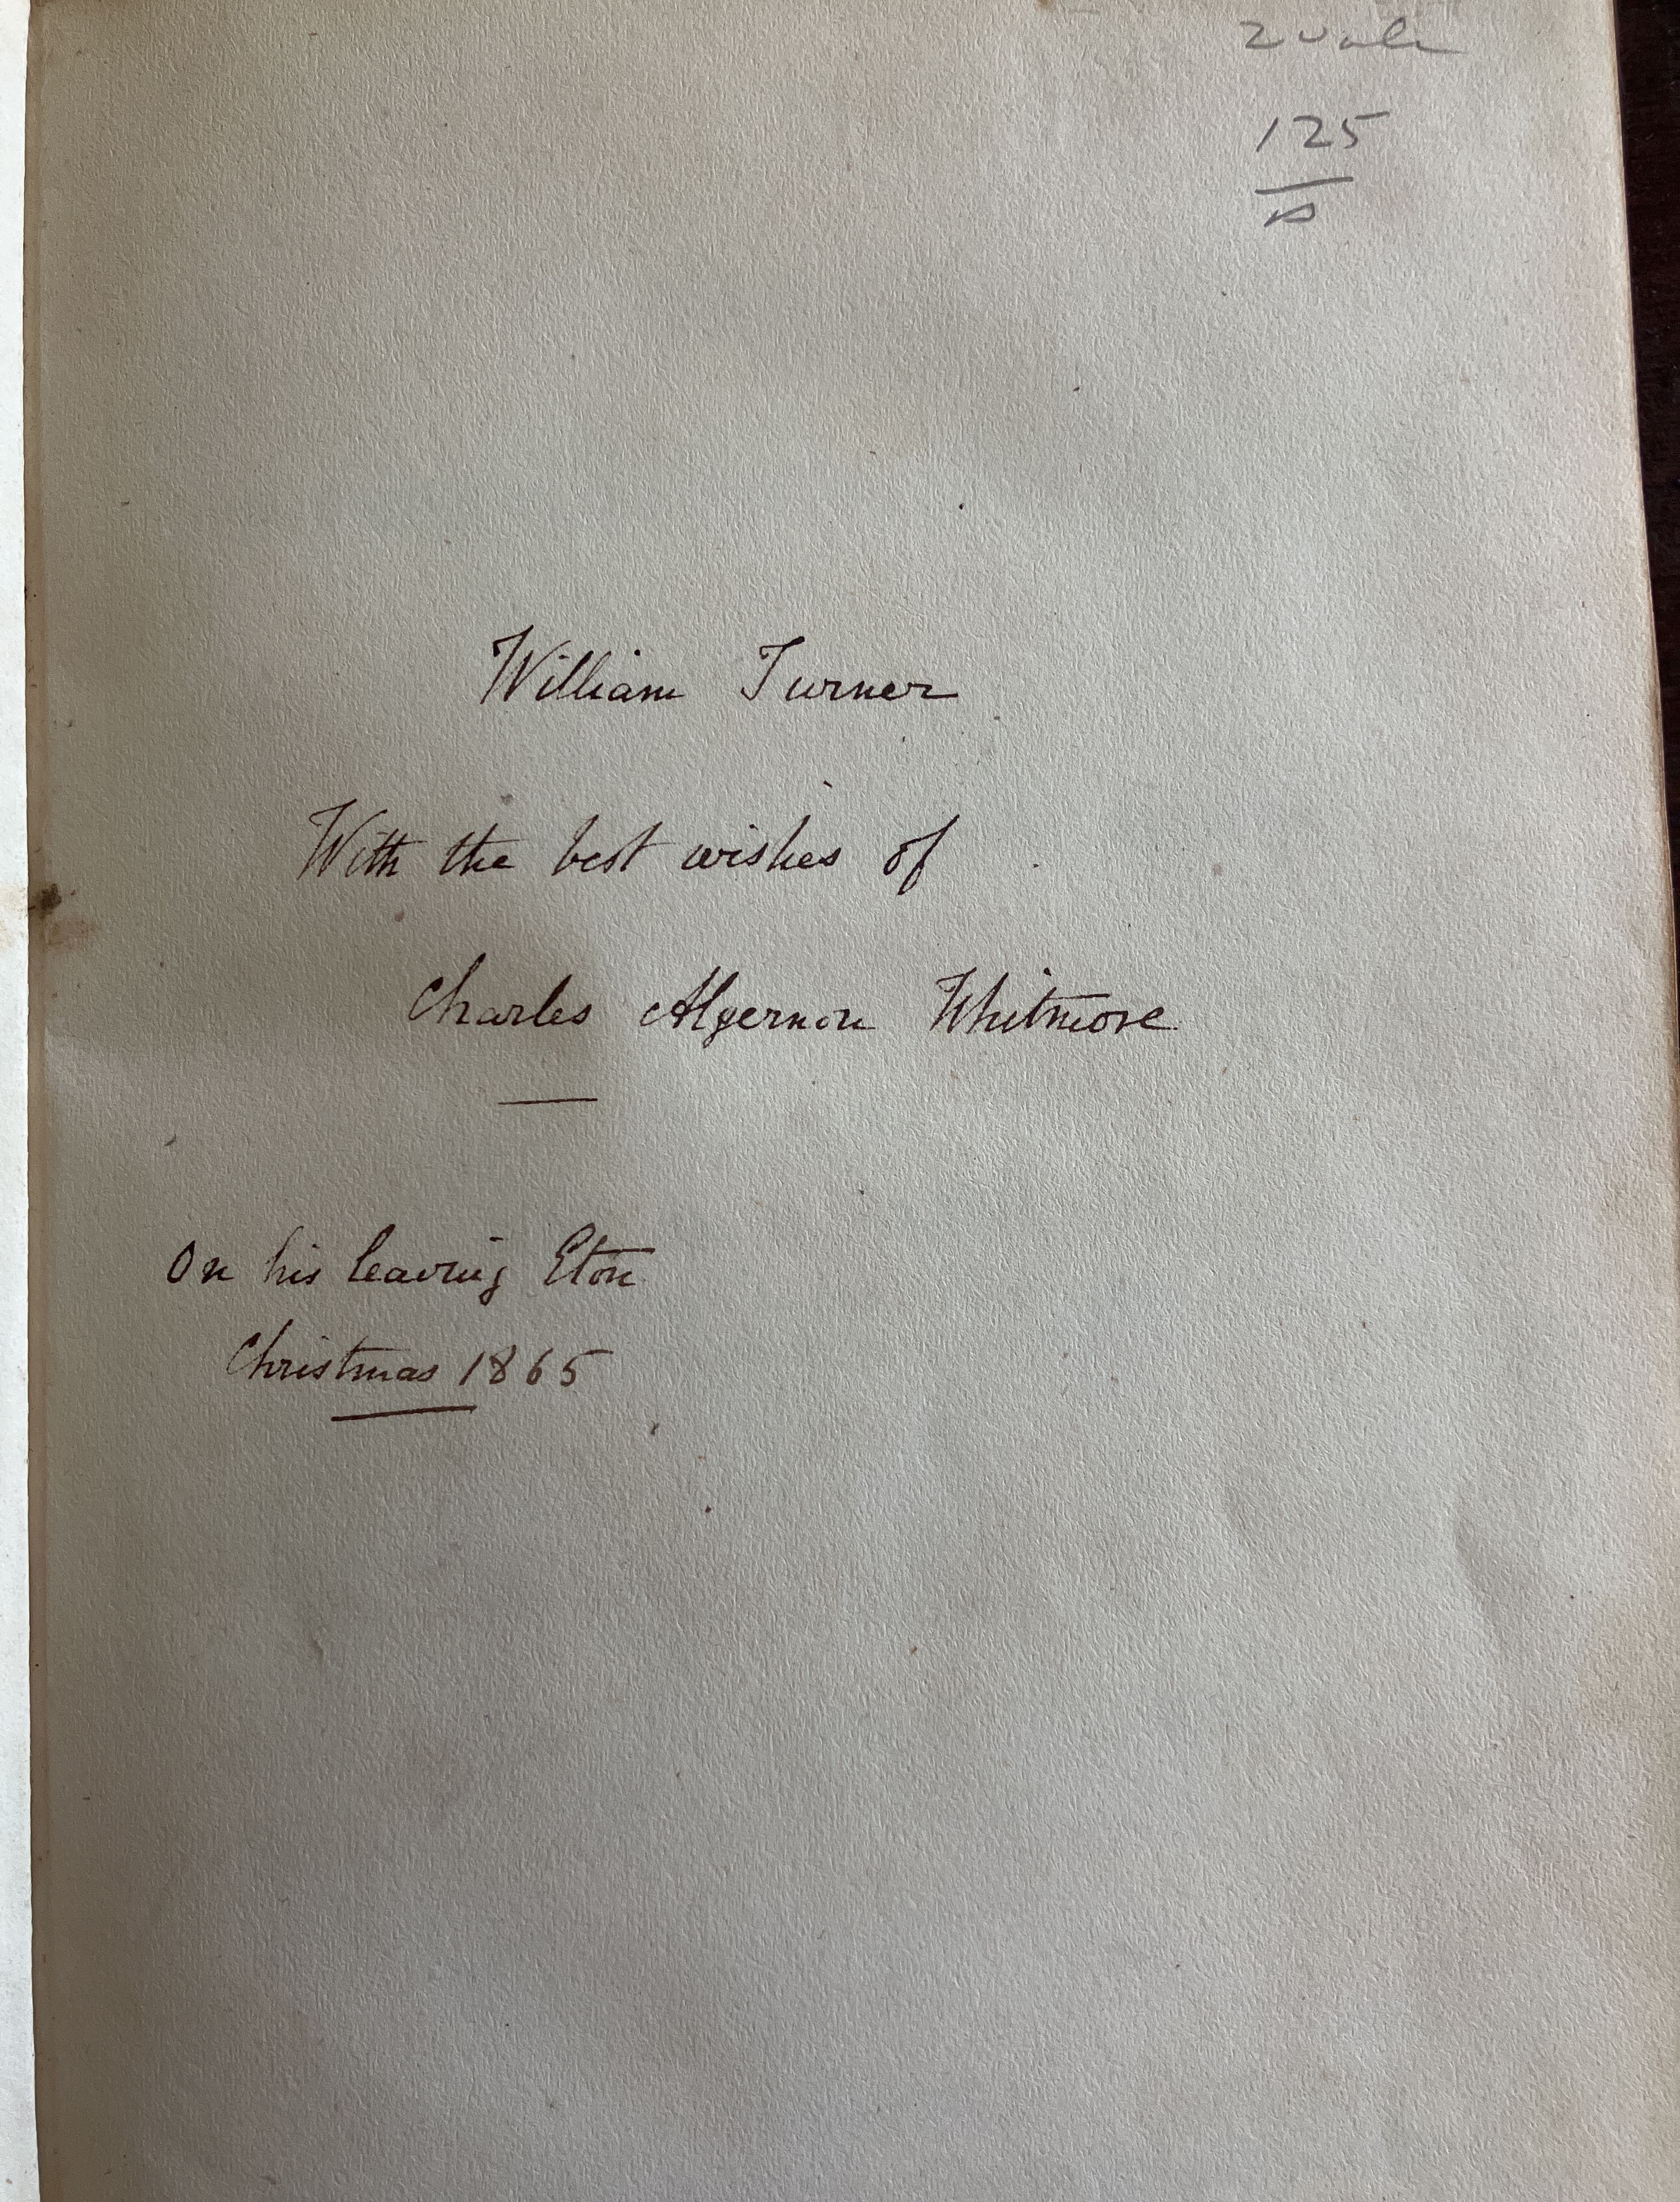 2 vols
125
William Turner
With the best wishes of
Charles Algernon Whitmore
On his leaving Eton
Christmas 1865